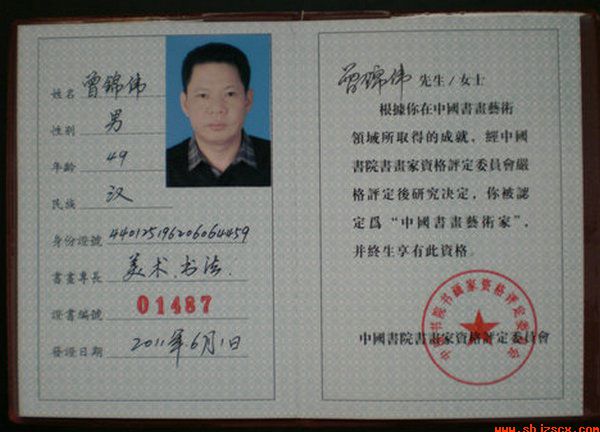 姓名 曾锦伟
性别 男
年龄 49
民族 汉
身份證號 440125196206064459
書畫專長 美术.书法.
證書編號 01487
發證日期 2011年6月1日
曾锦伟 先生/女士
根據你在中國書畫藝術
領域所取得的成就，經中國
書院書畫家資格評定委員會嚴
格評定後研究決定，你被認
定爲“中國書畫藝術家”，
并終生享有此資格。
中國書院書畫家資格評定委員會
www.shjzscx.com